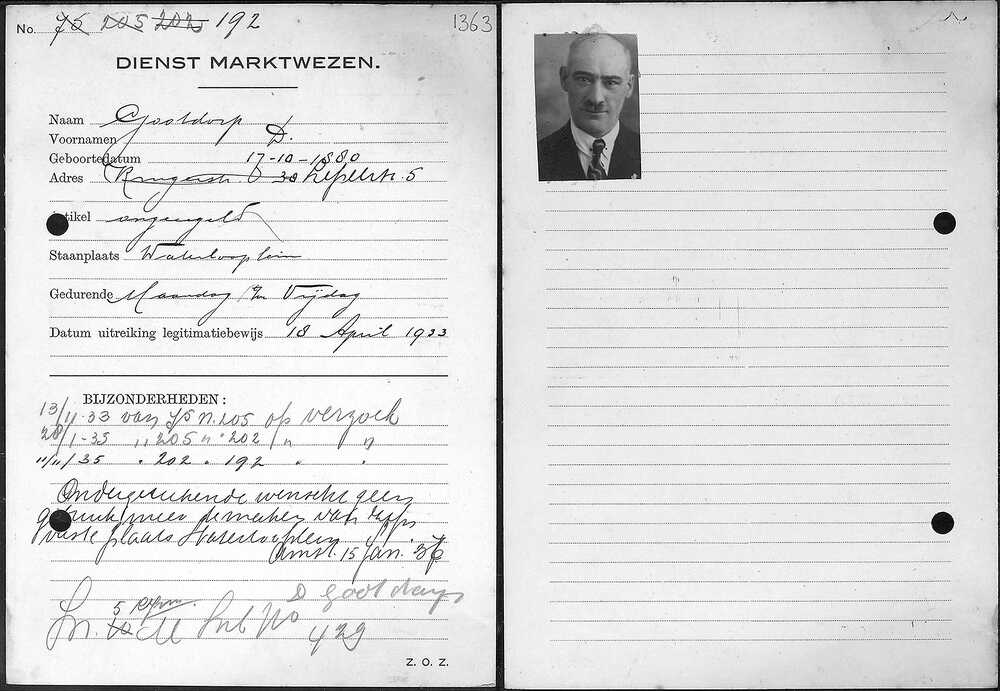 No. 75 205 202 192
1363
DIENST MARKTWEZEN.
Naam Gootdorp
Voornamen D.
Geboortedatum 17-10-1880
Adres 30 Lepelstr. 5
Artikel ongeregeld
Staanplaats Waterlooplein
Gedurende Maandag t/m Vrijdag
Datum uitreiking legitimatiebewijs 18 April 1933
BIJZONDERHEDEN:
13/11-33 van 75 n. 205 op verzoek
28/1-35 " 205 " " 202 " "
"/11/35 " 202 " 192 " "
Ondergetekende wenscht geen
gebruik meer te maken van
vaste plaats Waterlooplein
Amst. 15 Jan. 36
D Gootdorp
5
10
No
429
Z. O. Z.